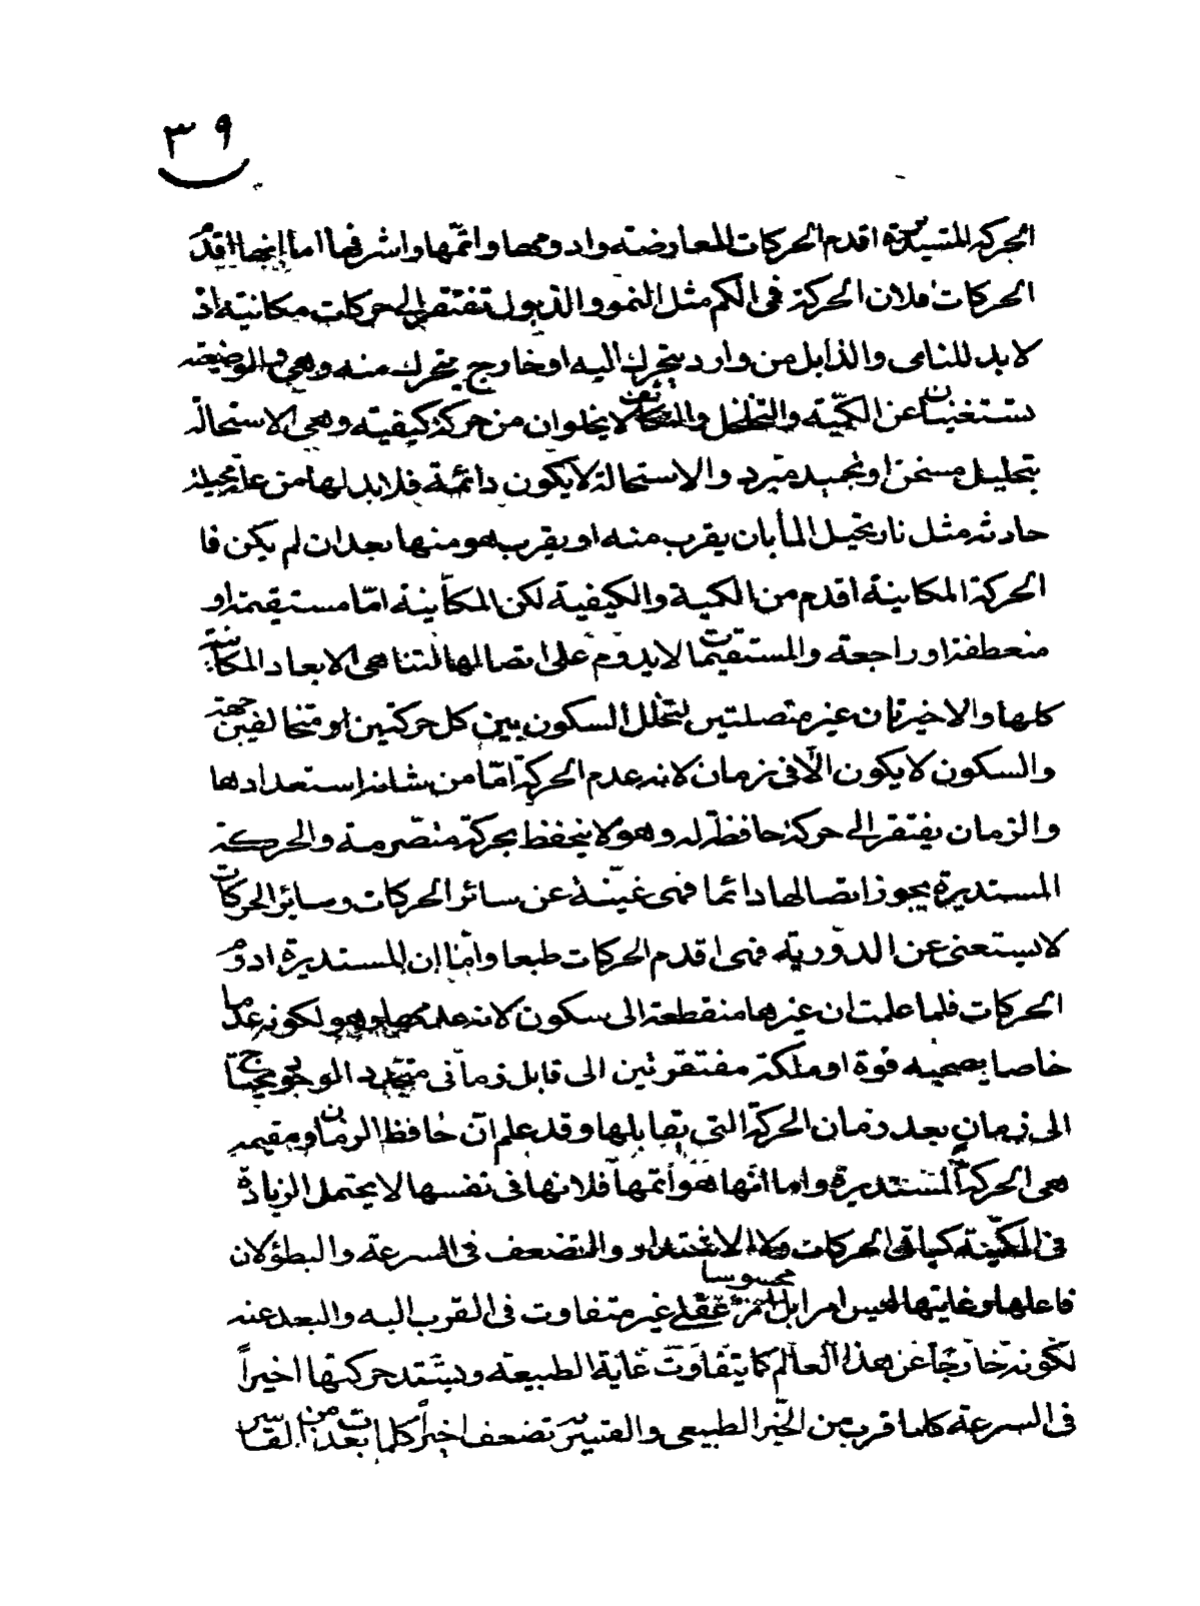 ٣٩
الحركة المستديرة اقدم الحركات المعاوضته وادومها واتمّها واشرفها اما انها اقدم
الحركات فلان الحركة فى الكم مثل النمو والذبول تفتقر الى حركات مكانيته اذ
لا بد للنامى والذابل من وارد يتحرك اليه او خارج يتحرك منه وهى والوضيعته
تستغنيان عن الكمّيته والتخلخل والتكاثف لا يخلوان من حركة كيفيته وهى الاستحالة
بتحليل مسخن او تجميد مبرد والاستحالة لا يكون دائمة فلا بد لها من علة محيلة
حادثه مثل نار يحيل الماٰ بان يقرب منه او يقرب هو منها بعد ان لم يكن فا
الحركة المكانية اقدم من الكمية والكيفية لكن المكانية امّا مستقيمة او
منعطفة او راجعة والمستقيمات لا يدوم على اتصالها لتناهى الابعاد المكانية
كلها والاخيرتان غير متصلتين لتخلل السكون بين كل حركتين او متخالفين جهة
والسكون لا يكون الّا فى زمان لانه عدم الحركة امّا من شانه استعدادها
والزمان يفتقر الى حركة حافظة له وهو لا ينحفظ بحركة متصّرمة والحركة
المستديرة يجوز اتصالها دائما فهى غيّنة عن سائر الحركات وسائر الحركات
لا يستغنى عن الدوريّة فهى اقدم الحركات طبعا وامّا ان المستديرة ادوم
الحركات فلما علمت ان غيرها منقطعة الى سكون لانه عدمها وهو لكونه عدما
خاصا يصحبه قوة او ملكة مفتقرتين الى قابل زمانى متجدد الوجود يحتاج
الى زمان بعد زمان الحركة التى تقابلها وقد علم انّ حافظ الزمان ومقيمه
هى الحركة المستديرة واما انّها هو اتمّها فلانها فى نفسها لا يحتمل الزيادة
فى الكميّة كباقى الحركات ولا الاشتداد والتضعف فى السرعة والبطؤ لان
فاعلها وغايتها ليس امرا محسوسا بل امر عقلى غير متفاوت فى القرب اليه والبعد عنه
لكونه خارجًا عن هذا العالم كما يتفاوت غاية الطبيعة ويشتد حركتها اخيراً
فى السرعة كلما قرب من الحّيز الطبيعى والقسير تضعف اخيراً كلما بعدت من القاسر